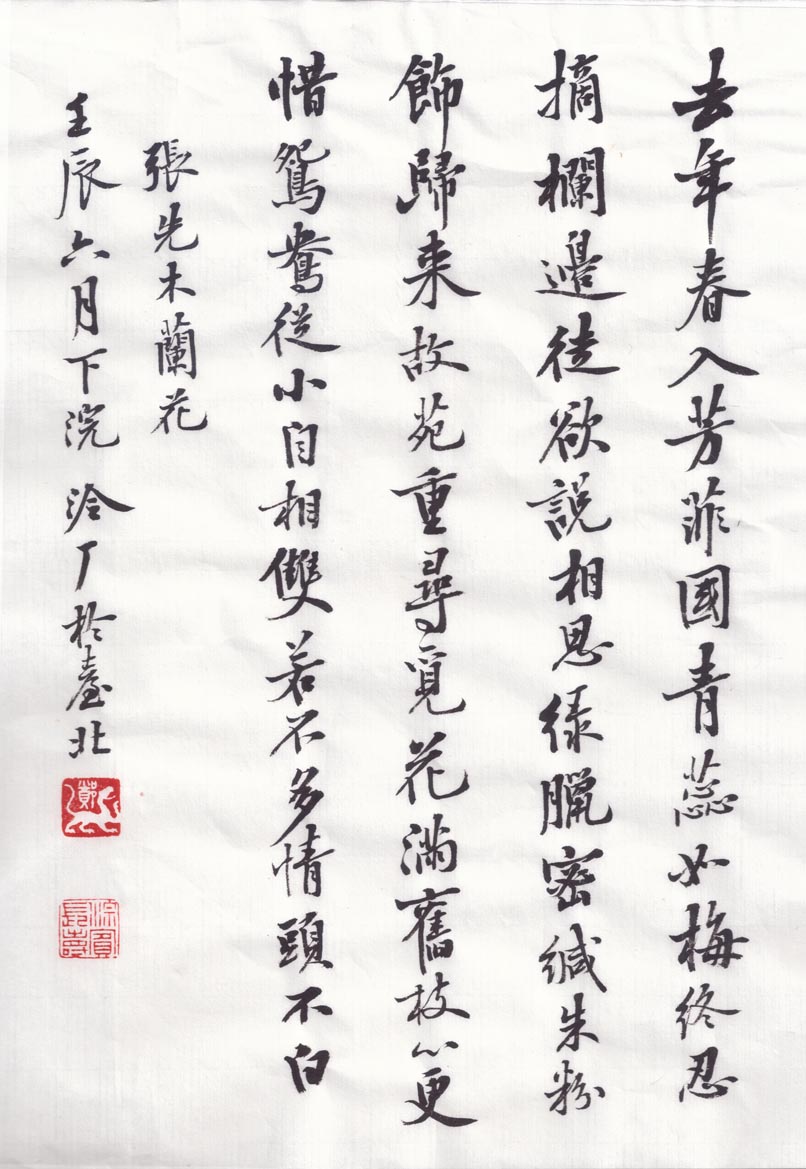 去年春入芳菲國青蕊如梅終忍
摘欄邊徒欲說相思綠臘密緘朱粉
飾歸来故苑重尋覓花滿舊枝心更
惜鴛鴦從小自相雙若不多情頭不白
張先木蘭花
壬辰六月下浣泠厂於臺北